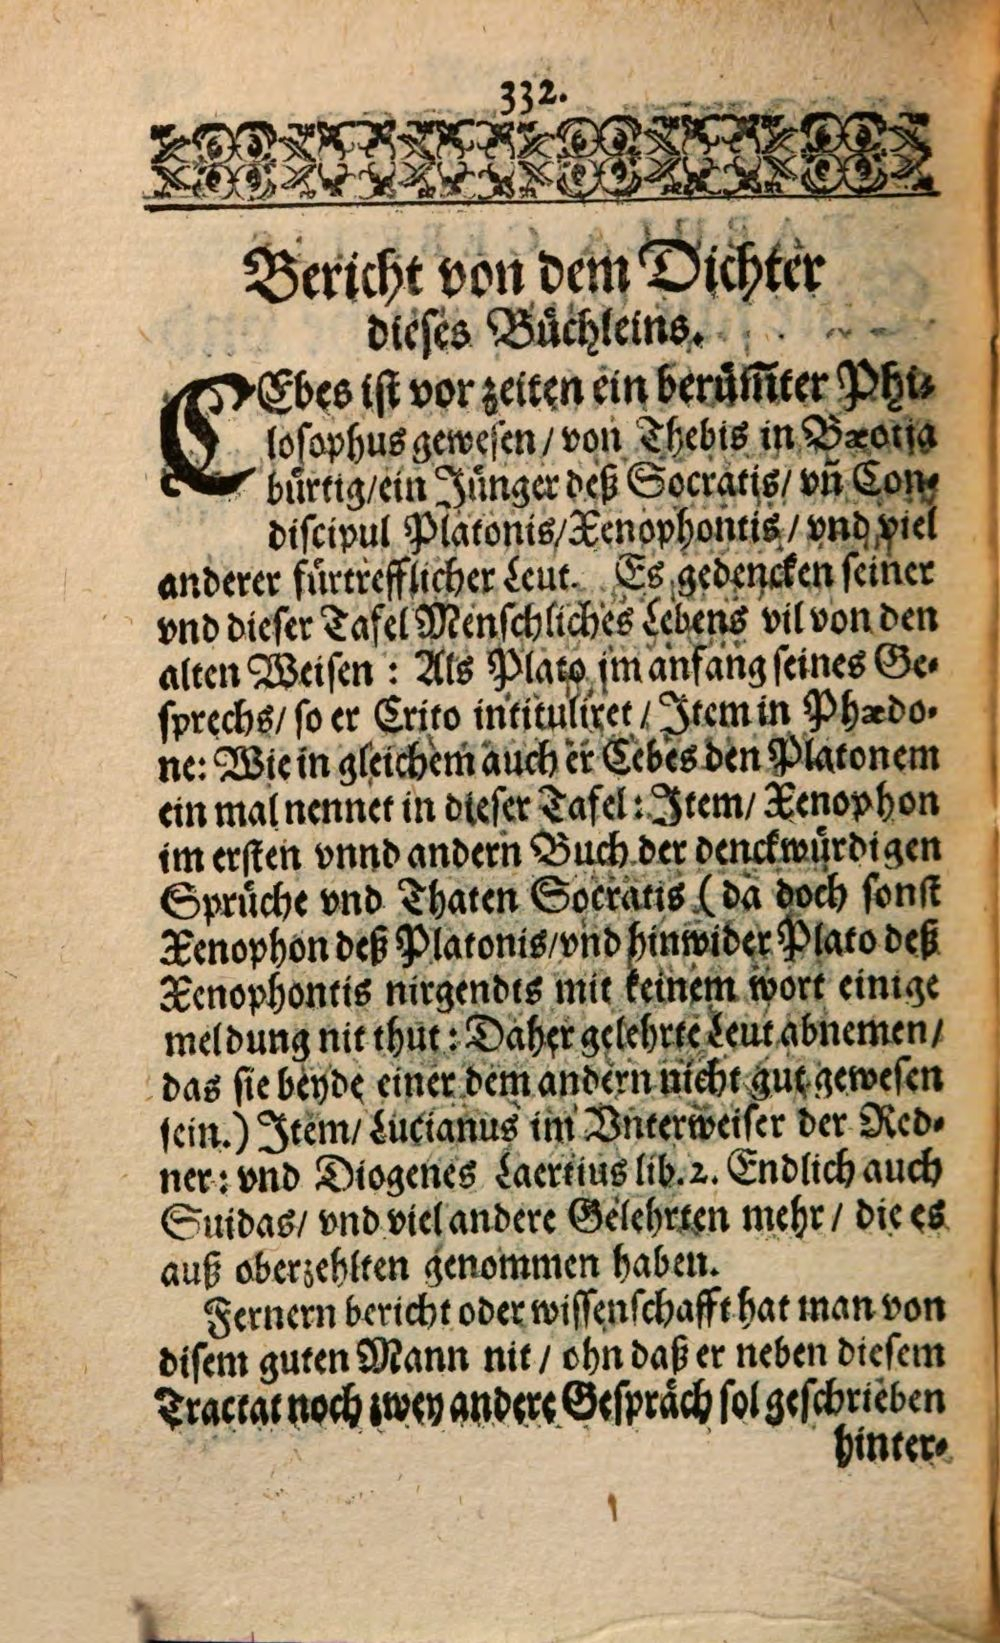 332.
Bericht von dem Dichter
dieses Büchleins.
CEbes ist vor zeiten ein berüm̃ter Phi-
losophus gewesen / von Thebis in Bæotia
bürtig / ein Jünger deß Socratis / vñ Con-
discipul Platonis / Xenophontis / vnd viel
anderer fürtrefflicher Leut. Es gedencken seiner
vnd dieser Tafel Menschliches Lebens vil von den
alten Weisen : Als Plato im anfang seines Ge-
sprechs / so er Crito intituliret / Item in Phædo-
ne: Wie in gleichem auch er Cebes den Platonem
ein mal nennet in dieser Tafel : Item / Xenophon
im ersten vnnd andern Buch der denckwürdigen
Sprüche vnd Thaten Socratis ( da doch sonst
Xenophon deß Platonis / vnd hinwider Plato deß
Xenophontis nirgendts mit keinem wort einige
meldung nit thut : Daher gelehrte Leut abnemen /
das sie beyde einer dem andern nicht gut gewesen
sein.) Item / Lucianus im Vnterweiser der Red-
ner : vnd Diogenes Laertius lib. 2. Endlich auch
Suidas / vnd viel andere Gelehrten mehr / die es
auß oberzehlten genommen haben.
Fernern bericht oder wissenschafft hat man von
disem guten Mann nit / ohn daß er neben diesem
Tractat noch zwey andere Gespräch sol geschrieben
hinter-